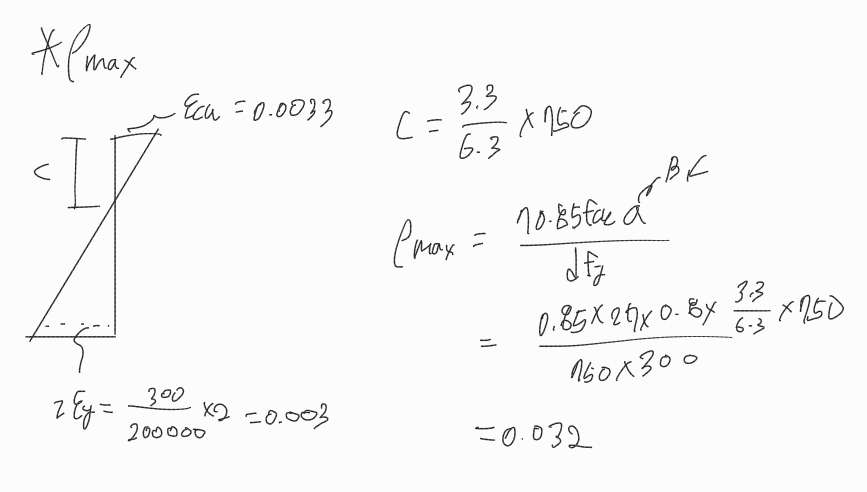 *ρmax
εcu = 0.0033
c
2εy = 300/200000 ×2 = 0.003
c = 3.3/6.3 × 750
β c
ρmax = η0.85fck a / d fy
= 0.85×27×0.8× 3.3/6.3 ×750 / 750×300
= 0.032